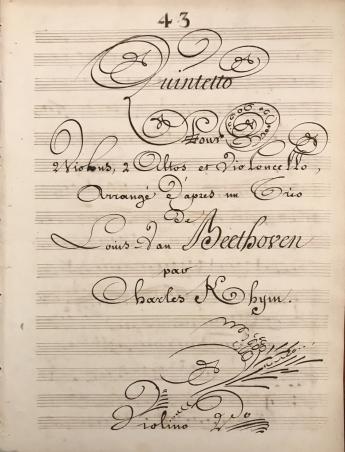 43
Quintetto
Pour
2 Violons, 2 Altos et Violoncello,
Arrangé d'apres un Trio
de
Louis van Beethoven
par
Charles Khym.
Violino 2do